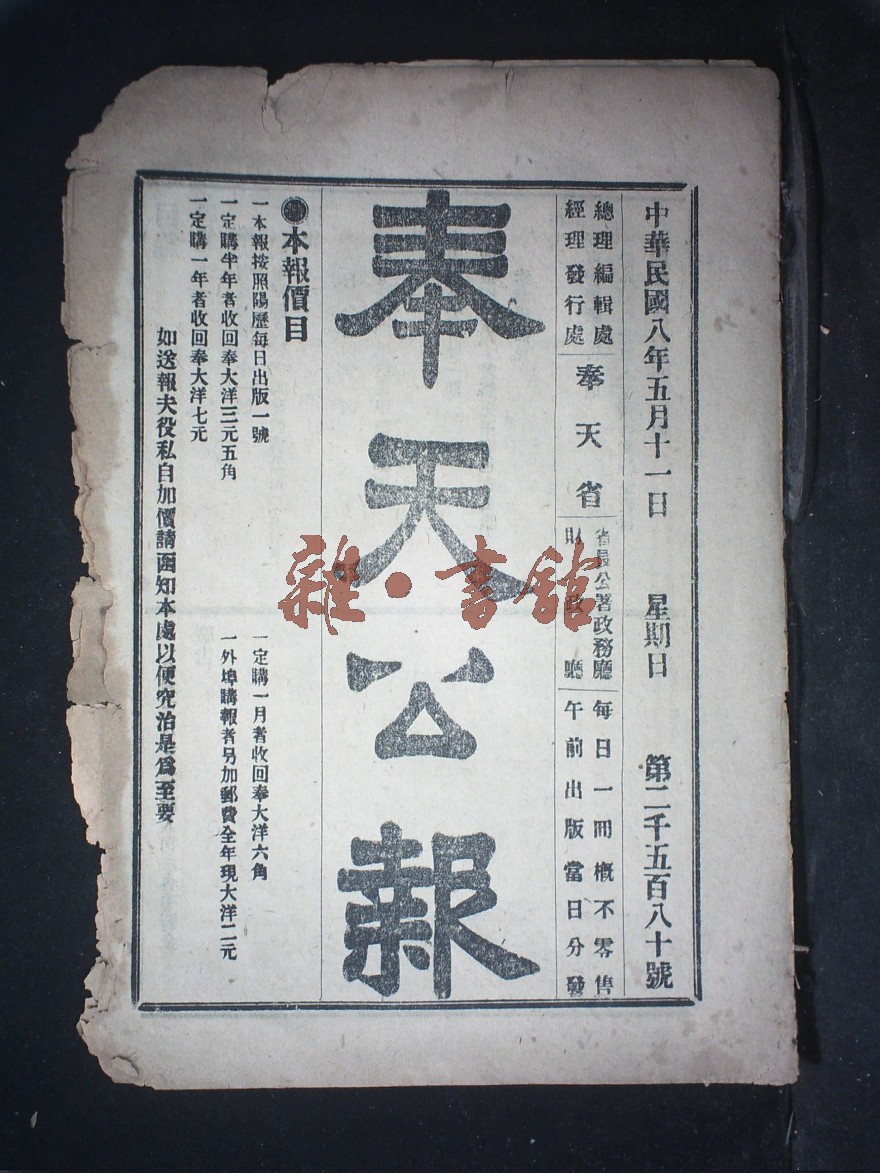 中華民國八年五月十一日 星期日 第二千五百八十號
總理編輯處
經理發行處
奉天省
省長公署政務廳
財政廳
每日一冊概不零售
午前出版當日分發
奉天公報
●本報價目
一本報按照陽歷每日出版一號
一定購半年者收回奉大洋三元五角
一定購一年者收回奉大洋七元
一定購一月者收回奉大洋六角
一外埠購報者另加郵費全年現大洋二元
如送報夫役私自加價請函知本處以便究治是爲至要
雜·書館